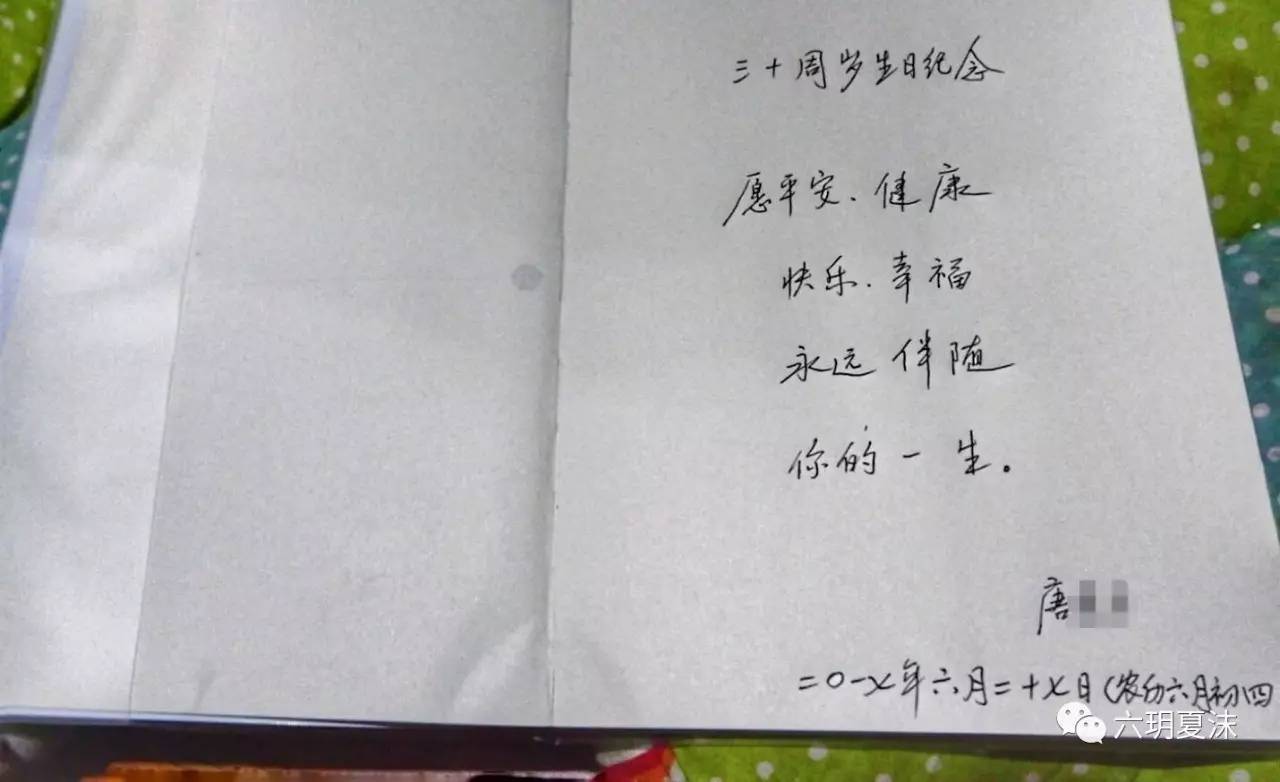 三十周岁生日纪念
愿平安、健康
快乐、幸福
永远伴随
你的一生。
唐
二0一七年六月二十七日(农历六月初四
六玥夏沫